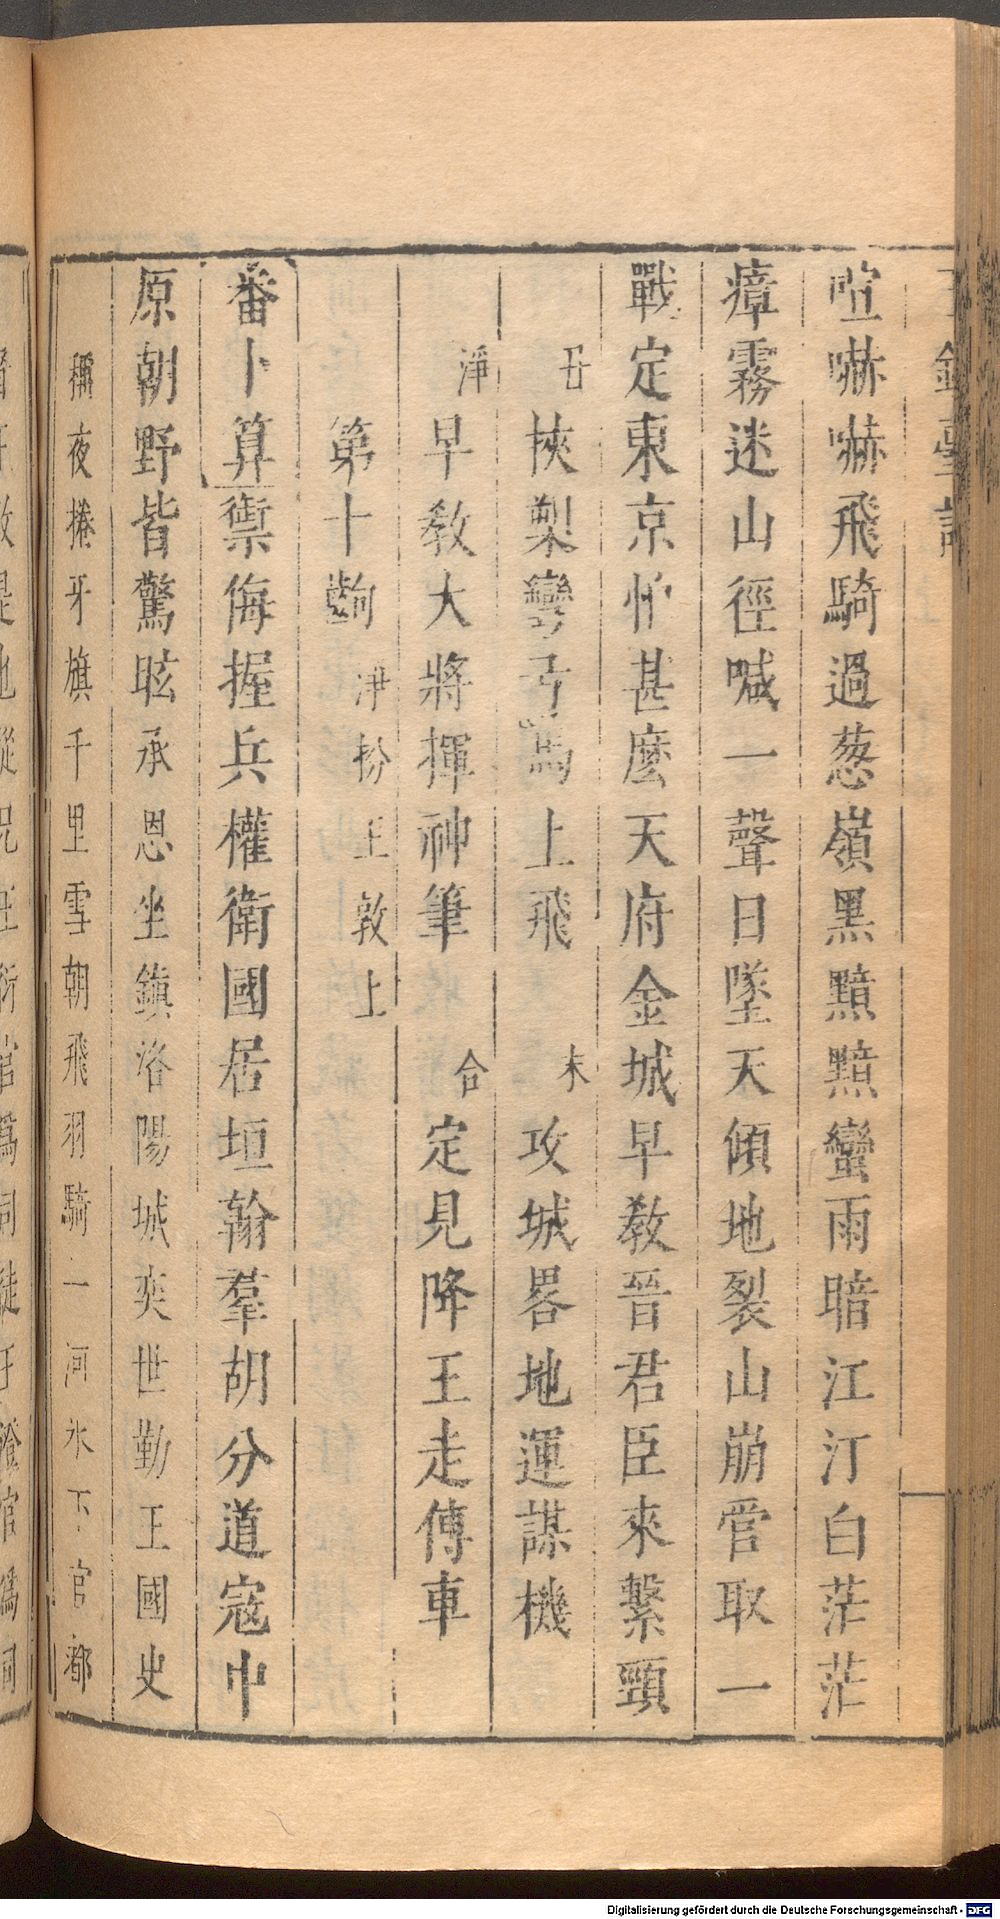 喧嚇嚇飛騎過葱嶺黑黯黯蠻雨暗江汀白茫茫
瘴霧迷山徑喊一聲日墜天傾地裂山崩管取一
戰定東京怕甚麽天府金城早教晉君臣來繫頸
丑挾槊彎弓馬上飛 末攻城畧地運謀機
淨早教大將揮神筆 合定見降王走傳車
第十齣 淨扮王敦上
番卜算禦侮握兵權衛國居垣翰羣胡分道寇中
原朝野皆驚眩承恩坐鎮洛陽城奕世勤王國史
稱夜捲牙旗千里雪朝飛羽騎一河氷下官都
Digitalisierung gefördert durch die Deutsche Forschungsgemeinschaft - DFG